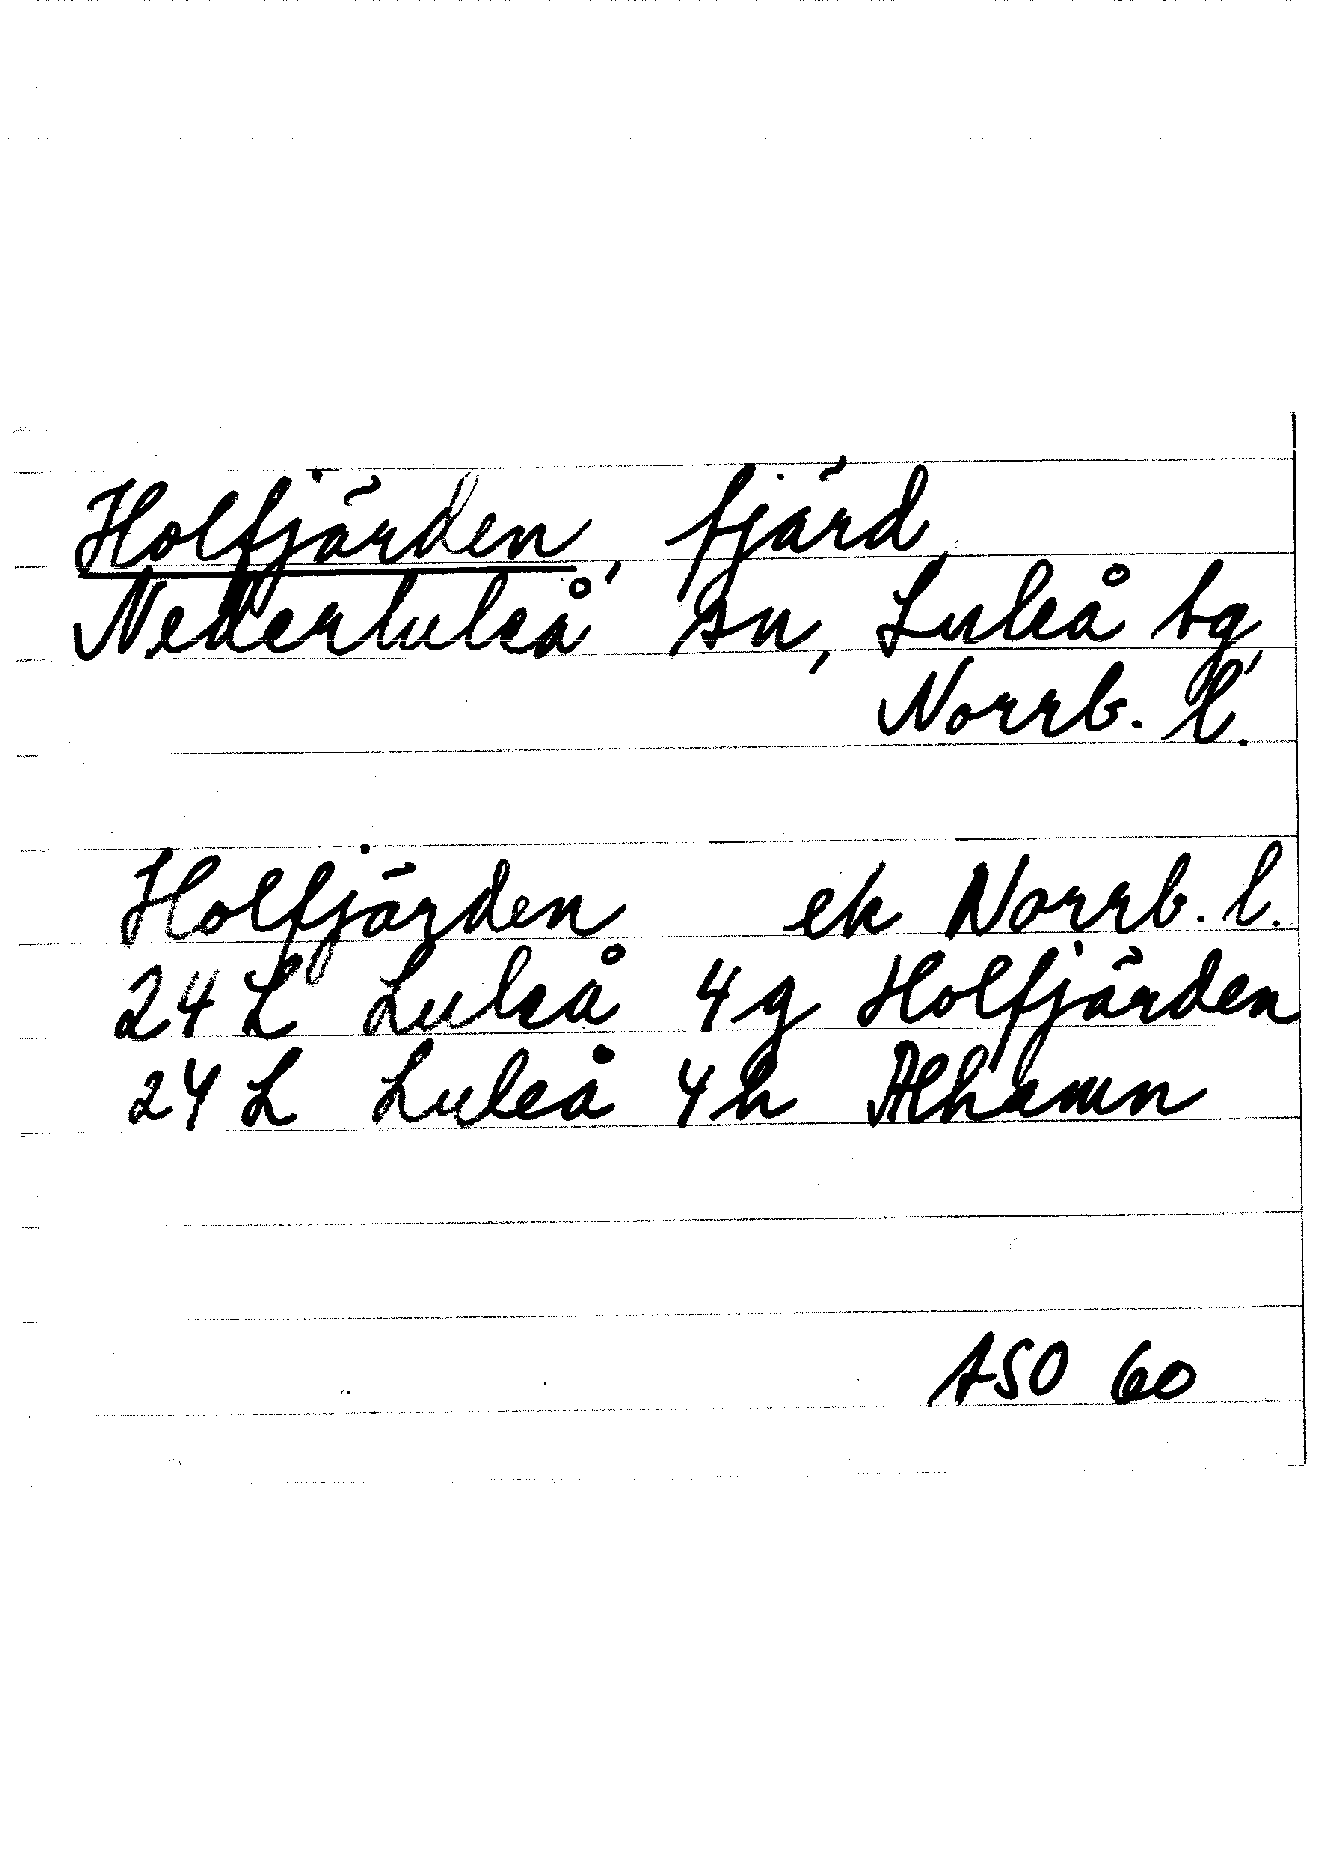 Holfjärden, fjärd
Nederluleå sn, Luleå tg,
Norrb. l.
Holfjärden ek Norrb. l.
24 L Luleå 4g Holfjärden
24 L Luleå 4h Alhamn
ASO 60